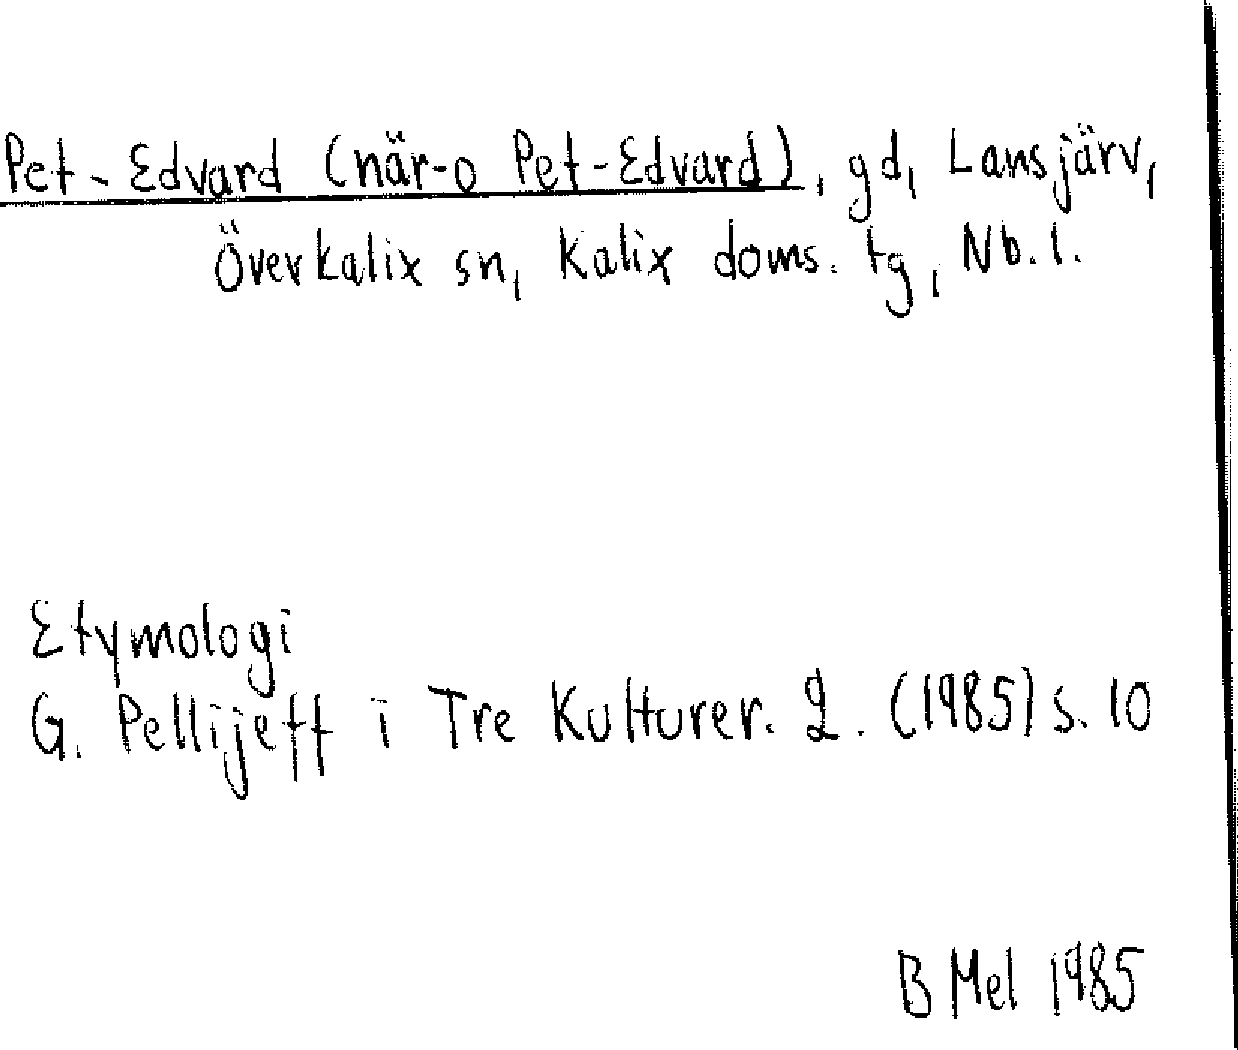 Pet-Edvard (när-o Pet-Edvard), gd, Lansjärv,
Överkalix sn, Kalix doms. tg, Nb. l.
Etymologi
G. Pellijeff i Tre Kulturer. 2. (1985) s. 10
B Mel 1985